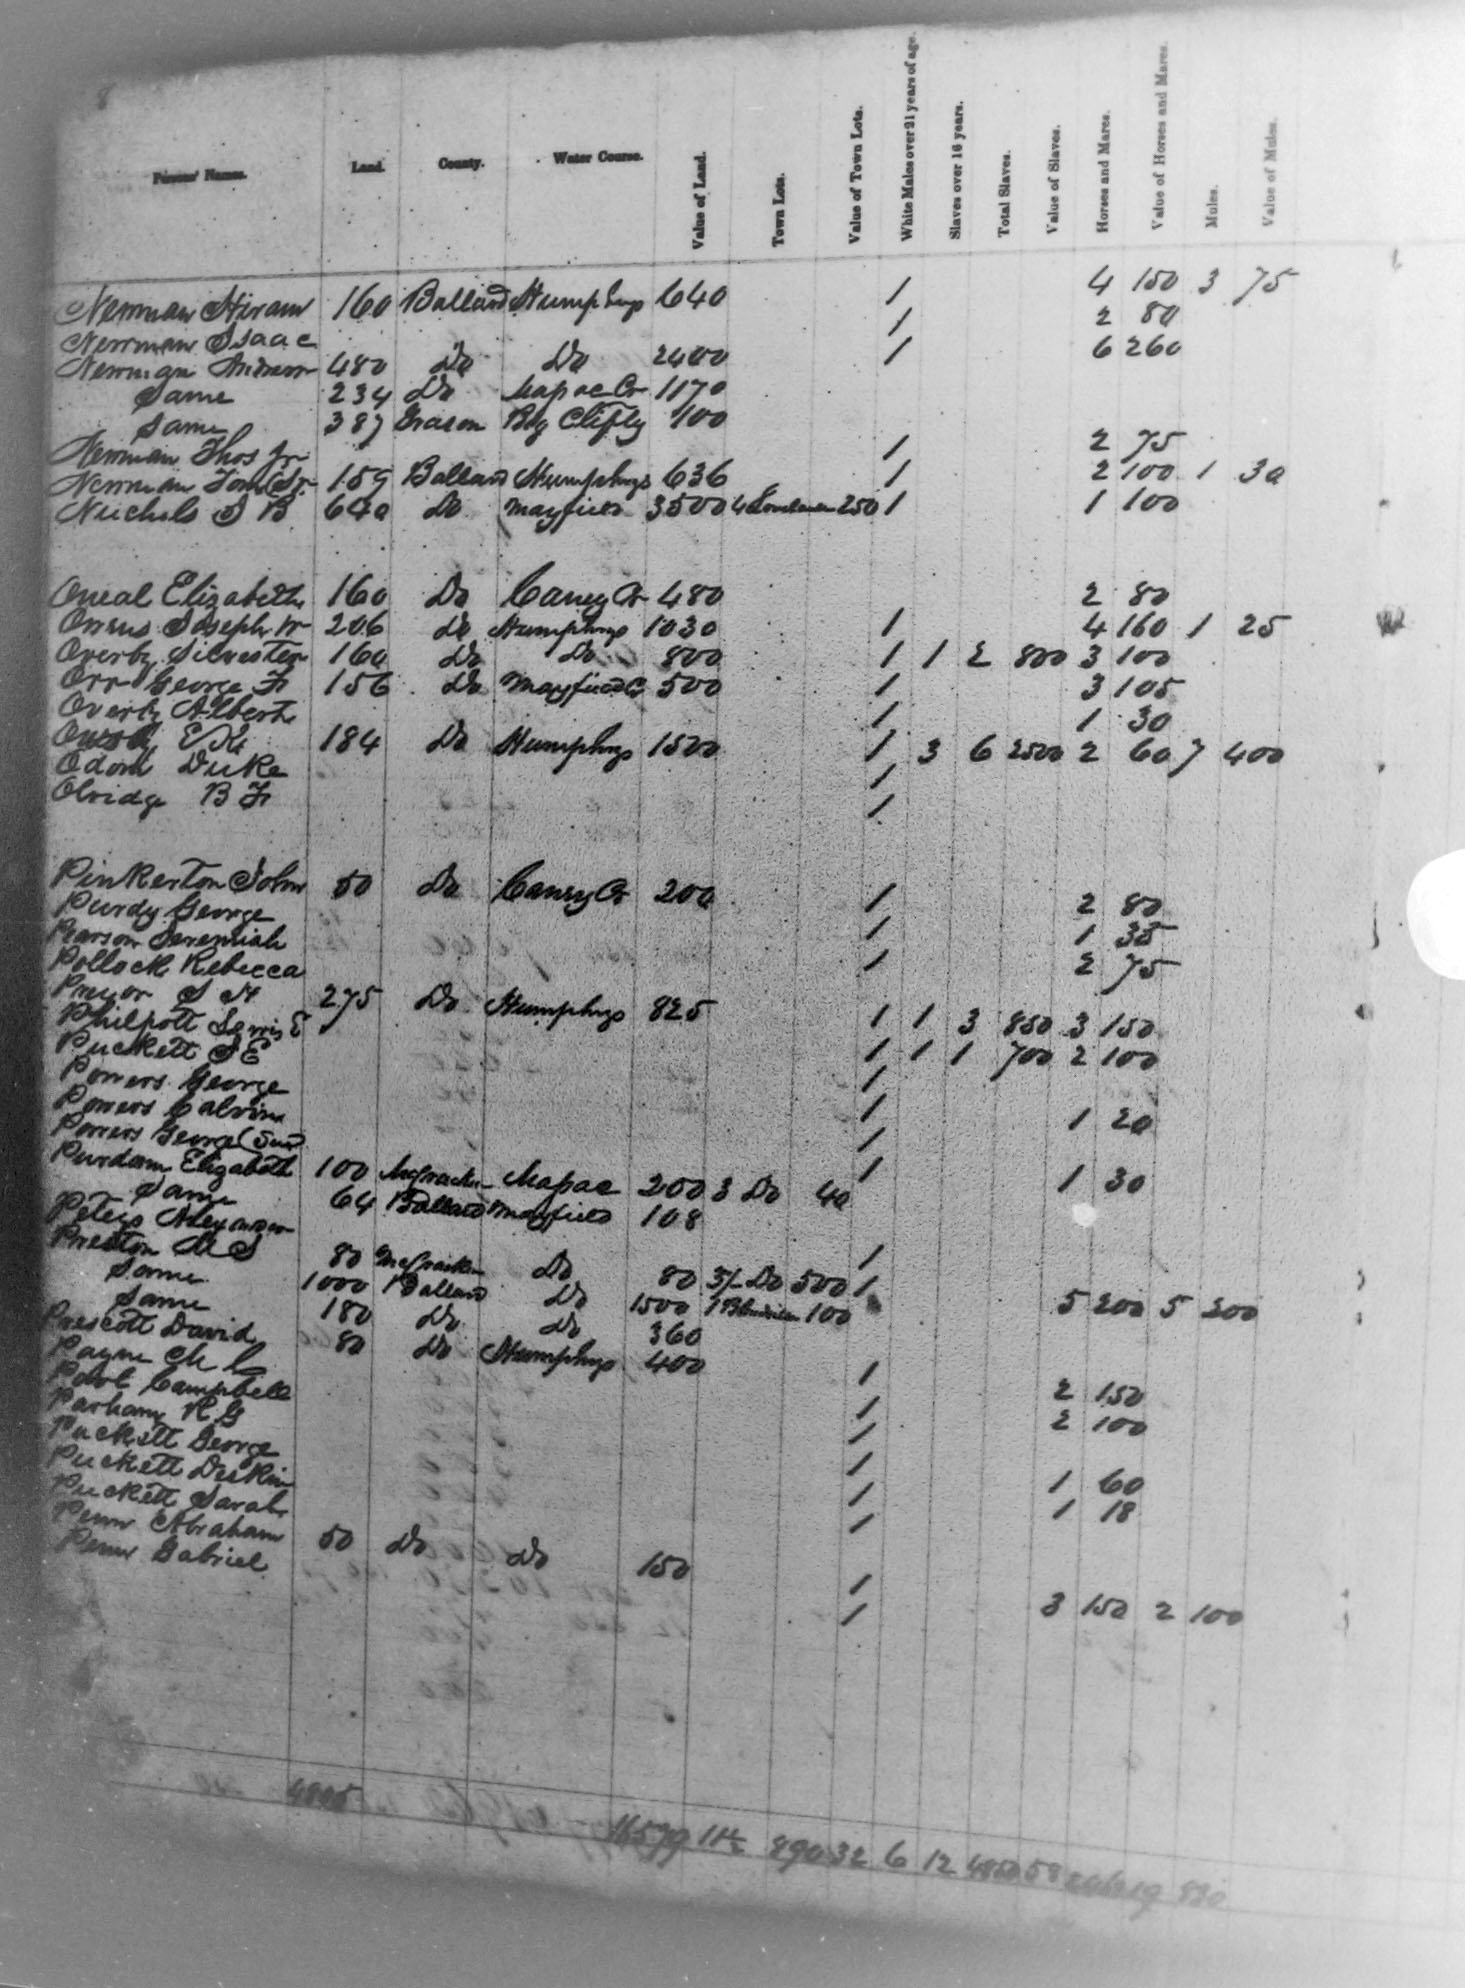 8
Persons' Names. Land. County. Water Course. Value of Land. Town Lots. Value of Town Lots. White Males over 21 years of age. Slaves over 16 years. Total Slaves. Value of Slaves. Horses and Mares. Value of Horses and Mares. Mules. Value of Mules.
Newman Hiram 160 Ballard Humphrys 640 1 4 150 3 75
Newman Isaac 1 2 80
Newman Andrew 480 Do Do 2400 1 6 260
Same 234 Do Mapac Cr 1170
Same 387 Grason Big Clifty 100
Newman Thos Jr 1 2 75
Newman Tom Sr 159 Ballard Humphrys 636 1 2 100 1 30
Nuchols S B 640 Do Mayfield 3500 4 250 1 1 100
Oneal Elizabeth 160 Do Caney Cr 480 2 80
Owens Joseph W 206 do Humphrys 1030 1 4 160 1 25
Overby Silvester 160 Do Do 800 1 1 2 800 3 100
Orr George F 156 Do Mayfield C 500 1 3 105
Overby Albert 1 1 30
184 Do Humphrys 1500 1 3 6 2500 2 60 7 400
Odom Duke 1
Olridge B F 1
Pinkerton John 50 Do Caney Cr 200 1 2 80
Purdy George 1 1 35
Pearson Jeremiah 1 2 75
Pollock Rebecca
Pryor S H 275 Do Humphrys 825 1 1 3 850 3 150
Philpott Lewis E 1 1 1 700 2 100
Puckett S E 1
Powers George 1 1 20
Powers Calvin 1
Powers George 1 1 30
Purdam Elizabeth 100 McCracken Mapac 200 3 Do 40
Same 64 Ballard Mayfield 108
Peteys Alexander 1
Preston M S 80 McCracken Do 80 5 Do 500 1 5 200 5 200
Same 1000 Ballard Do 1500 1 100
Same 180 Do Do 360
Prescott David 80 Do Humphrys 400 1 2 150
Payne M C 1 2 100
Campbell 1
Parham R G 1 1 60
Puckett George 1 1 18
Puckett 1
Puckett Sarah
Penn Abraham 50 Do Do 150 1
Penn Gabriel 1 3 150 2 100
4805 16579 11½ 890 32 6 12 4850 58 830